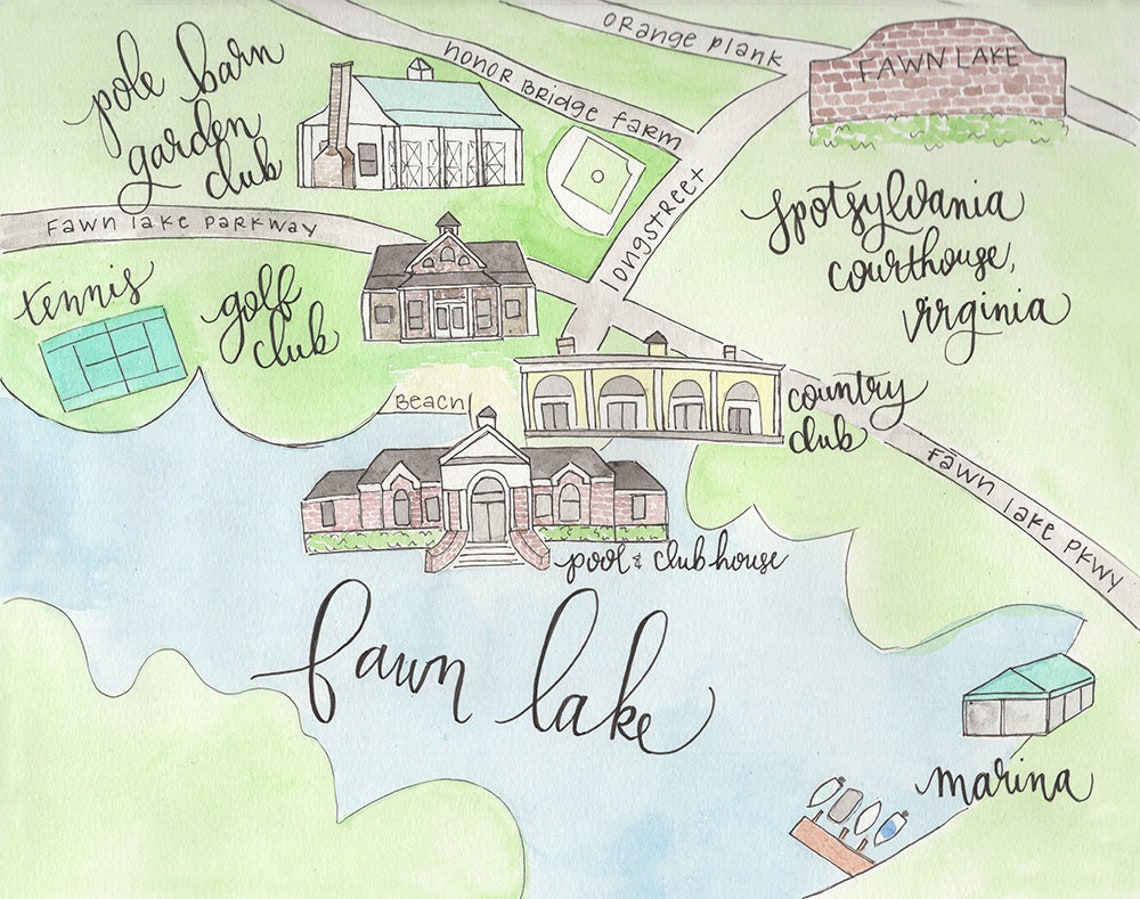 orange plank
honor Bridge farm
FAWN LAKE
pole barn
garden
club
longstreet
Fawn lake parkway
spotsylvania
courthouse,
virginia
tennis
golf
club
Beach
country
club
Fawn lake pkwy
pool & clubhouse
fawn lake
marina